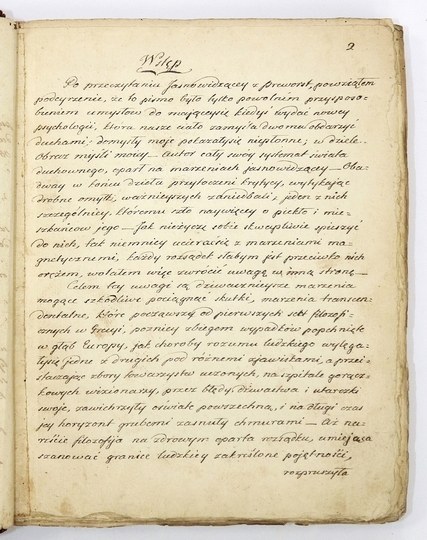 2
Wstęp
Po przeczytaniu Jasnowidzącey z Prevorst, powziąłem
podeyrzenie, że to pismo było tylko powolnem przysposo-
bieniem umysłow do maiącey się kiedyś wydać nowey
psychologii, która nasze ciało zamyśla dwoma obdarzyć
duchami; domysły moje pokazały się niepłonne; w dziele
obrocz myśli mowy — autor cały swóy systemat świata
duchownego, oparł na marzeniach jasnowidzącey — Oba-
dway w końcu dzieła przytoczeni krytycy, wytykaiąc
drobne omyłki, ważnieyszych zaniedbali; jeden z nich
szczególniey, któremu szło naywięcey o piekło i mie-
szkańcow jego — Jak nieżyczę sobie skwapliwie spieszyć
do nich, tak niemniey ucierać się z marzeniami ma-
gnetycznemi, każdy rozsądek słabym jest przeciwko nich
orężem, wolałem więc zwrócić uwagę w inną stronę —
Celem tey uwagi są dziwacznieysze marzenia
mogące szkodliwe pociągnąć skutki, marzenia transcen-
dentalne, które począwszy od pierwszych sekt filozofi-
cznych w Grecyi, pozniey zbiegem wypadków popchnięte
w głąb Europy, jak choroby rozumu ludzkiego wylęga-
ły się jedne z drugich pod różnemi zjawiskami, a przei-
staczając zbory towarzystw uczonych, na szpitale gorącz-
kowych wizionarzy, przez błędy, dziwactwa i utarczki
swoje, zawichrzyły oświatę powszechną, i na długi czas
jey horyzont grubemi zasnuły chmurami — Aż na-
reście filozofija na zdrowym oparta rozsądku, umieiąca
szanować granice ludzkiey zakreślone poiętności,
rozpruszyła